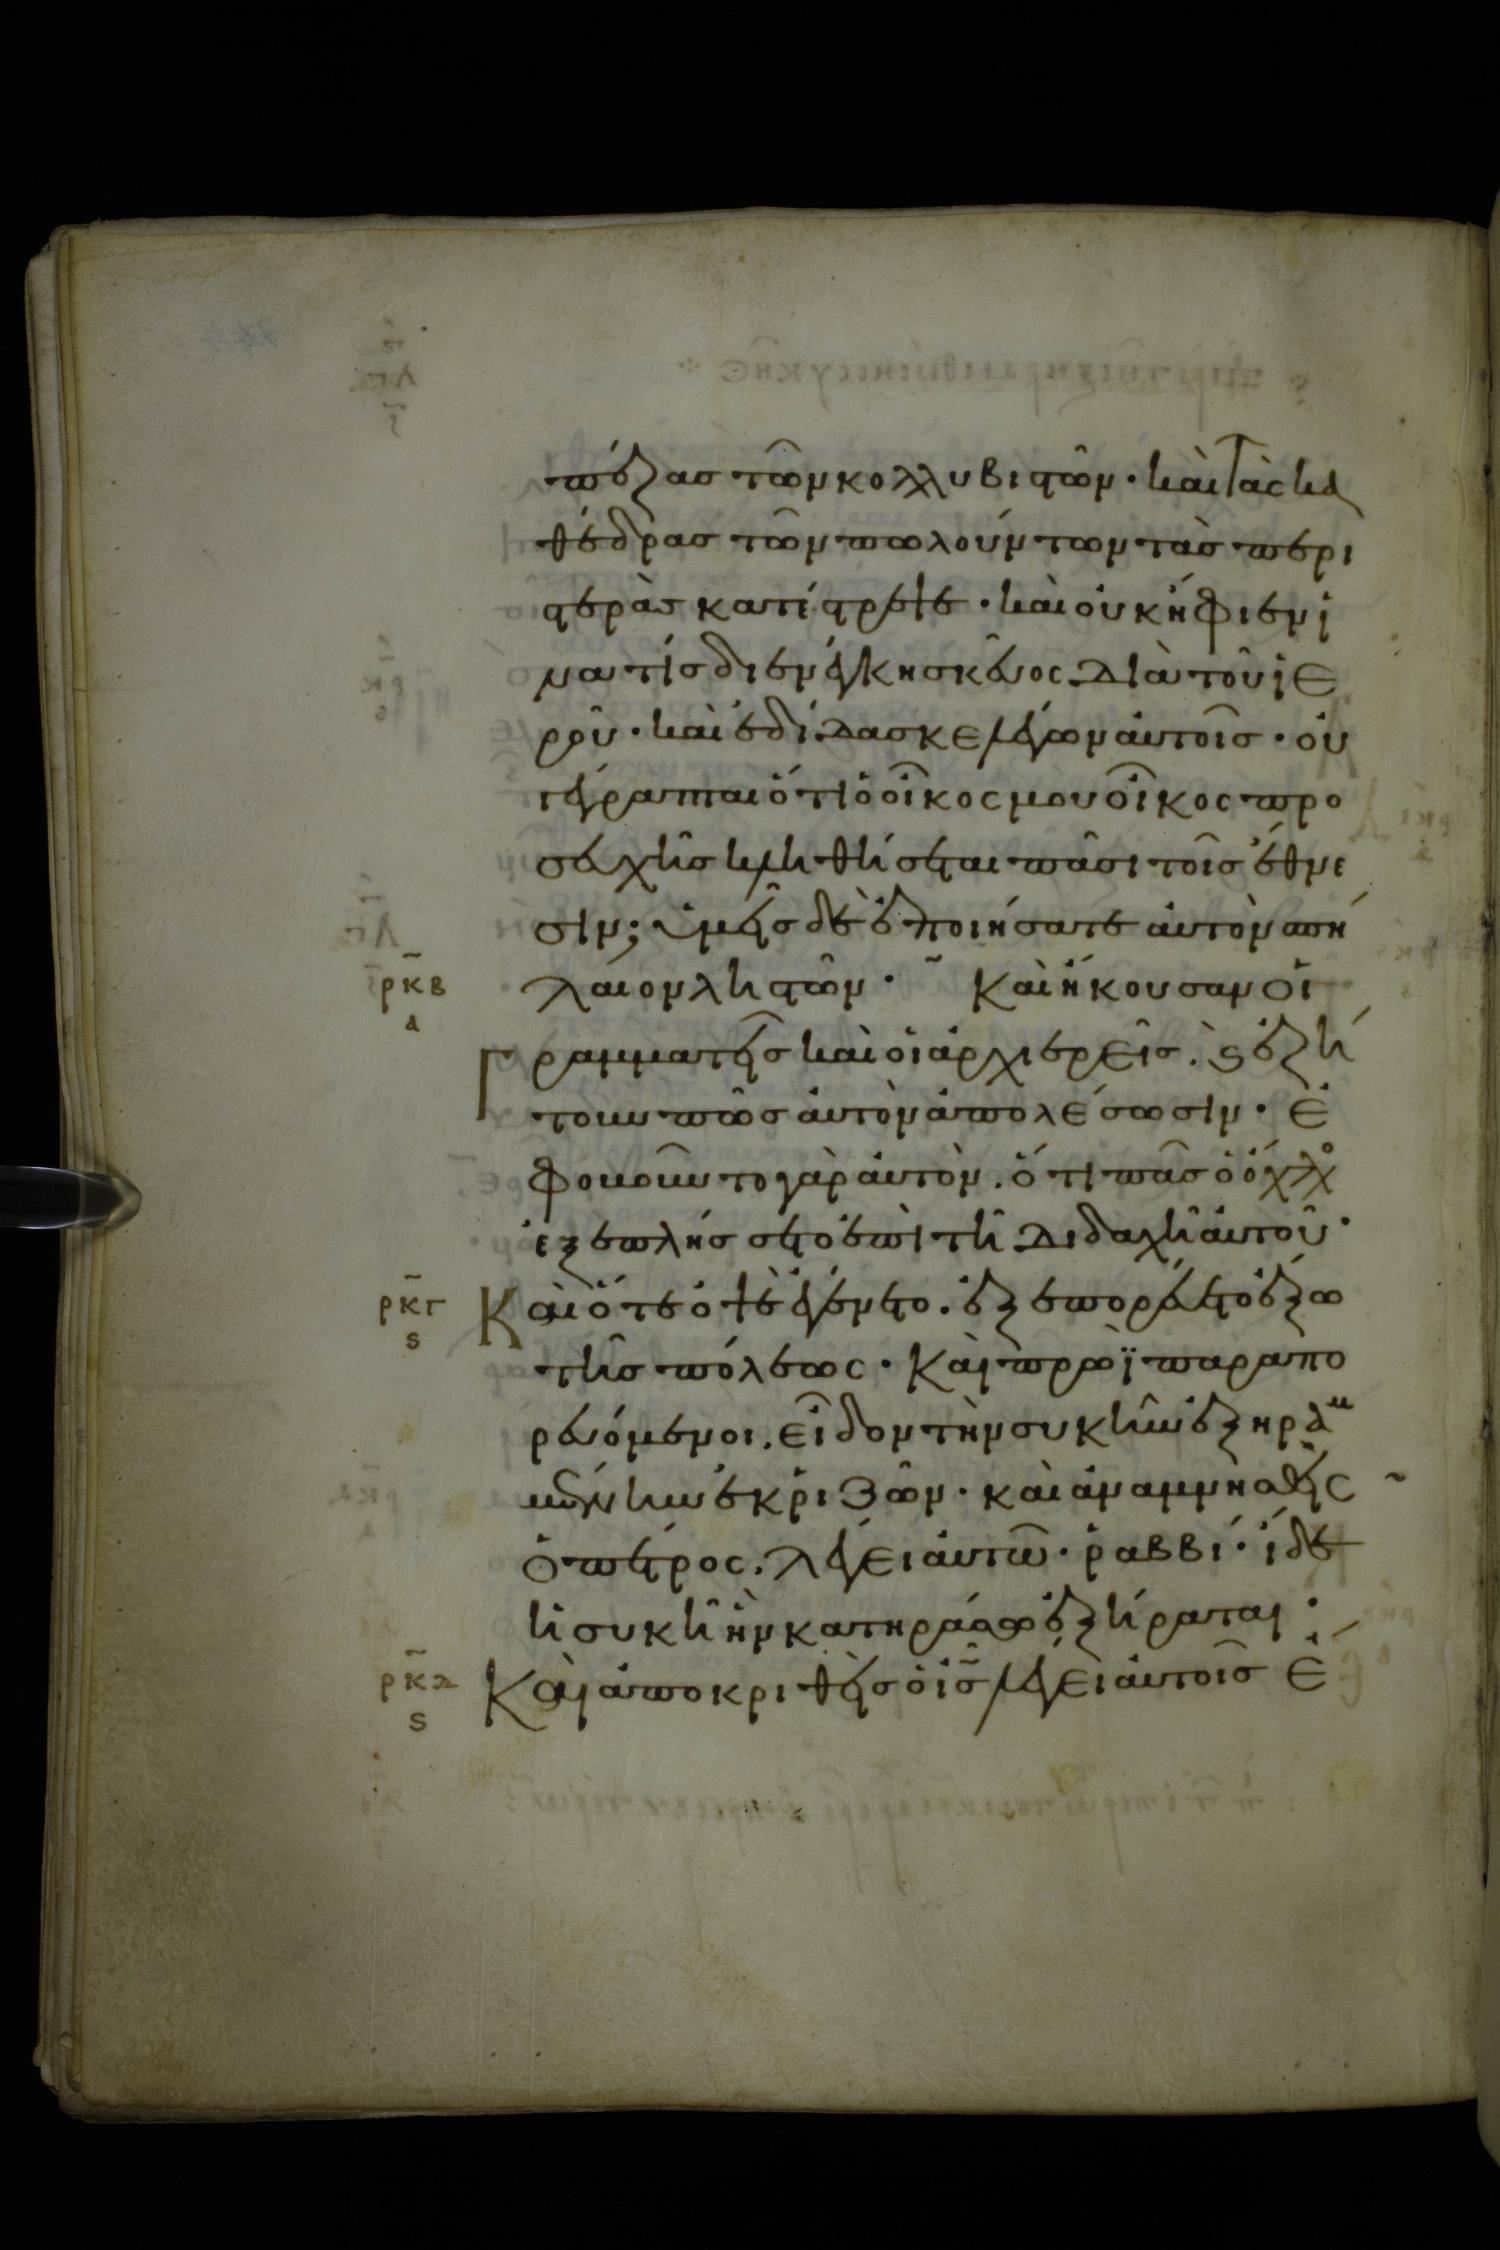 πέζας τῶν κολλυβιστῶν· καὶ τὰς κα
θέδρας τῶν πωλούντων τὰς περι
στερὰς κατέστρεψε· καὶ οὐκ ἤφιεν ἵ
να τίς διενέγκη σκεῦος διὰ τοῦ ἱε
ροῦ· καὶ ἐδίδασκε λέγων αὐτοῖς· οὐ
γέγραπται ὅτι ὁ οἶκος μου οἶκος προ
σευχῆς κληθήσεται πᾶσι τοῖς ἔθνε
σιν; ὑμεῖς δὲ ἐποιήσατε αὐτὸν σπή
ρκβ
α
λαιον ληστῶν· Καὶ ἤκουσαν οἱ
Γραμματεῖς καὶ οἱ ἀρχιερεῖς. ϗ ἐζή
τουν πῶς αὐτὸν ἀπολέσωσιν· ἐ
φοβοῦντο γὰρ αὐτὸν. ὅτι πᾶς ὁ ὄχλο
ἐξεπλήσσετο ἐπὶ τῆ διδαχῆ αὐτοῦ·
ρκγ
ϛ
Καὶ ὅτε ὀψὲ ἐγένετο. ἐξεπορεύετο ἔξω
τῆς πόλεως· Καὶ πρωῒ παραπο
ρευόμενοι. εἶδον τὴν συκῆν ἐξηραμ
μένην ἐκ ριζῶν· καὶ ἀναμνησθεὶς
ὁ πέτρος. λέγει αὐτῶ· ῥαββί· ἴδε
ἡ συκῆ ἣν κατηράσω ἐξήραται·
ρκδ
ϛ
Καὶ ἀποκριθεὶς ὁ ις λέγει αὐτοῖς ἔ